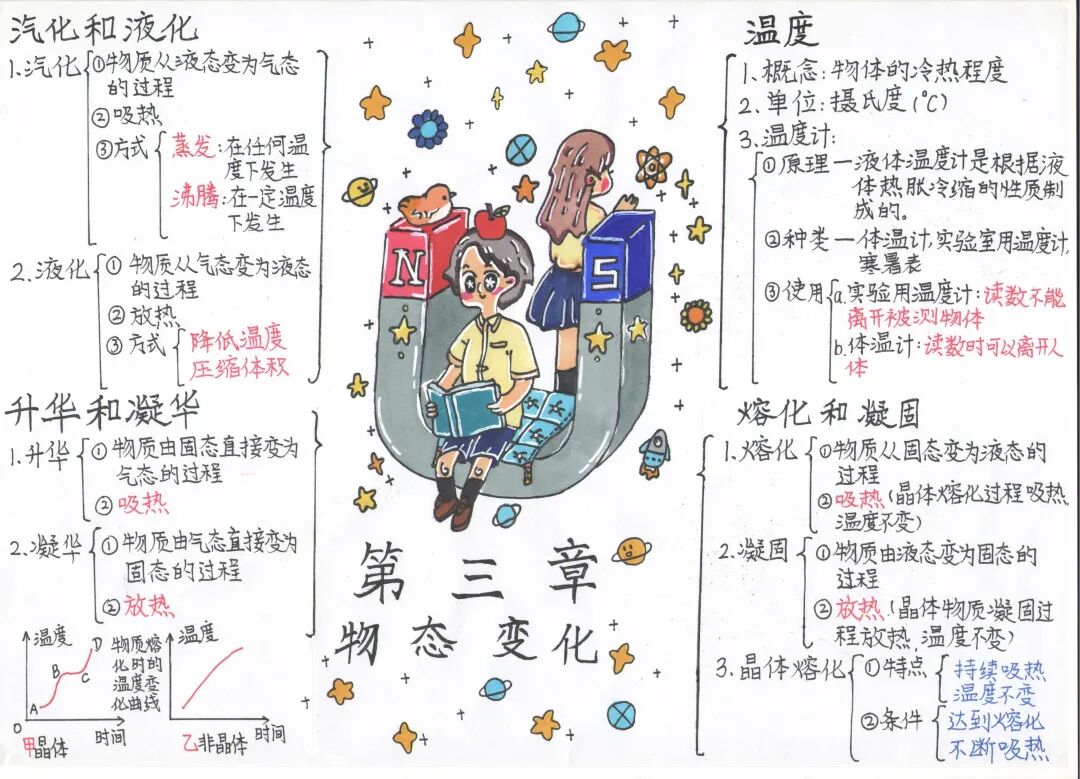 汽化和液化
1.汽化
①物质从液态变为气态
的过程
②吸热
③方式
蒸发:在任何温
度下发生
沸腾:在一定温度
下发生
2.液化
①物质从气态变为液态
的过程
②放热
③方式
降低温度
压缩体积
升华和凝华
1.升华
①物质由固态直接变为
气态的过程
②吸热
2.凝华
①物质由气态直接变为
固态的过程
②放热
温度
D
B
C
A
O
时间
甲晶体
物质熔
化时的
温度变
化曲线
温度
时间
乙非晶体
N
S
第三章
物态变化
温度
1.概念:物体的冷热程度
2.单位:摄氏度(℃)
3.温度计:
①原理—液体温度计是根据液
体热胀冷缩的性质制
成的。
②种类—体温计,实验室用温度计,
寒暑表
③使用
a.实验用温度计:读数不能
离开被测物体
b.体温计:读数时可以离开人
体
熔化和凝固
1.熔化
①物质从固态变为液态的
过程
②吸热(晶体熔化过程吸热,
温度不变)
2.凝固
①物质由液态变为固态的
过程
②放热(晶体物质凝固过
程放热,温度不变)
3.晶体熔化
①特点
持续吸热
温度不变
②条件
达到熔化
不断吸热